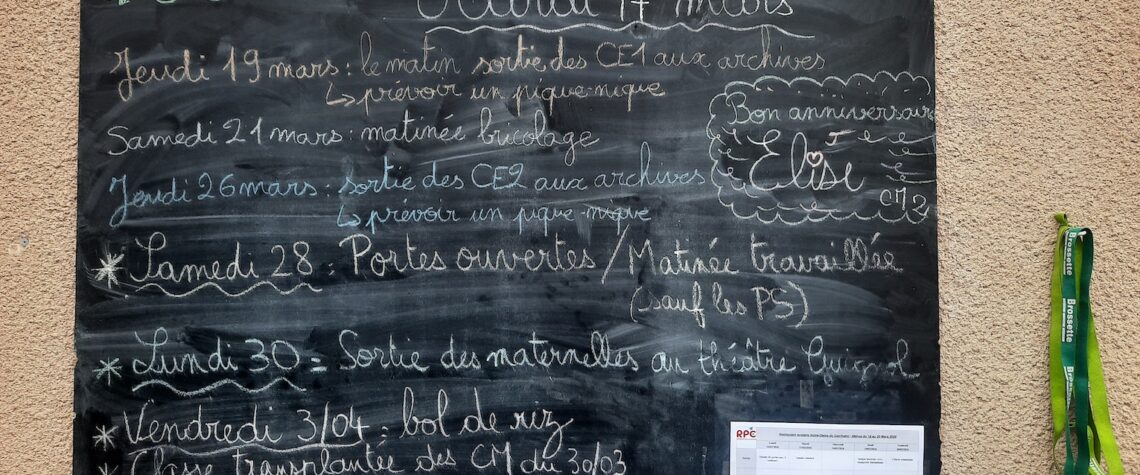 Mardi 17 mars
Jeudi 19 mars : le matin sortie des CE1 aux archives
↳ prévoir un pique-nique
Samedi 21 mars : matinée bricolage
Jeudi 26 mars : sortie des CE2 aux archives
↳ prévoir un pique-nique
* Samedi 28 : Portes ouvertes / Matinée travaillée
(sauf les PS)
* Lundi 30 = Sortie des maternelles au théâtre Guignol
* Vendredi 3/04 : bol de riz
* Classe transplantée des CM du 30/03
Bon anniversaire
Elise
CM2
RPC
Brossette
Brossette
Brossette